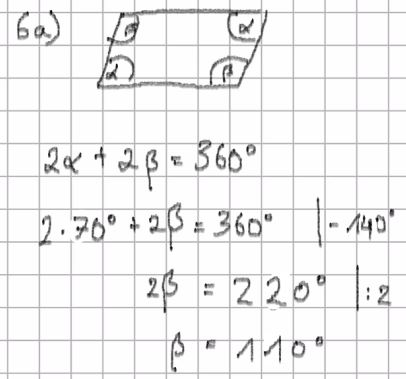 6a)
β α
α β
2α + 2β = 360°
2·70° + 2β = 360° |- 140°
2β = 220° |:2
β = 110°